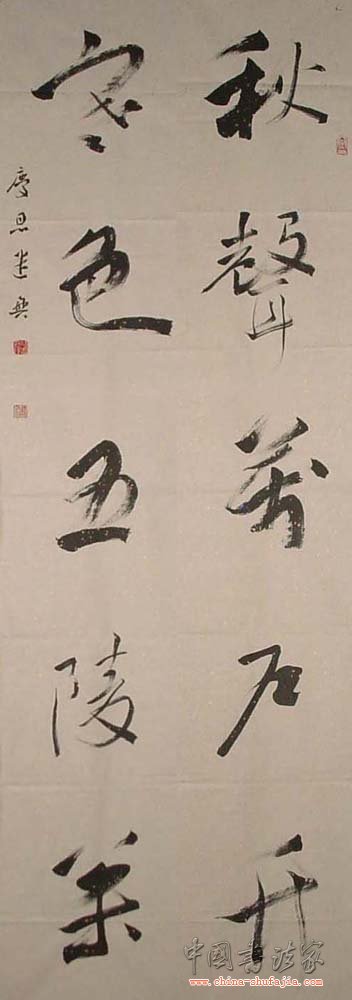 秋聲萬户竹
寒色五陵松
中國書法家
www.china-shufajia.com